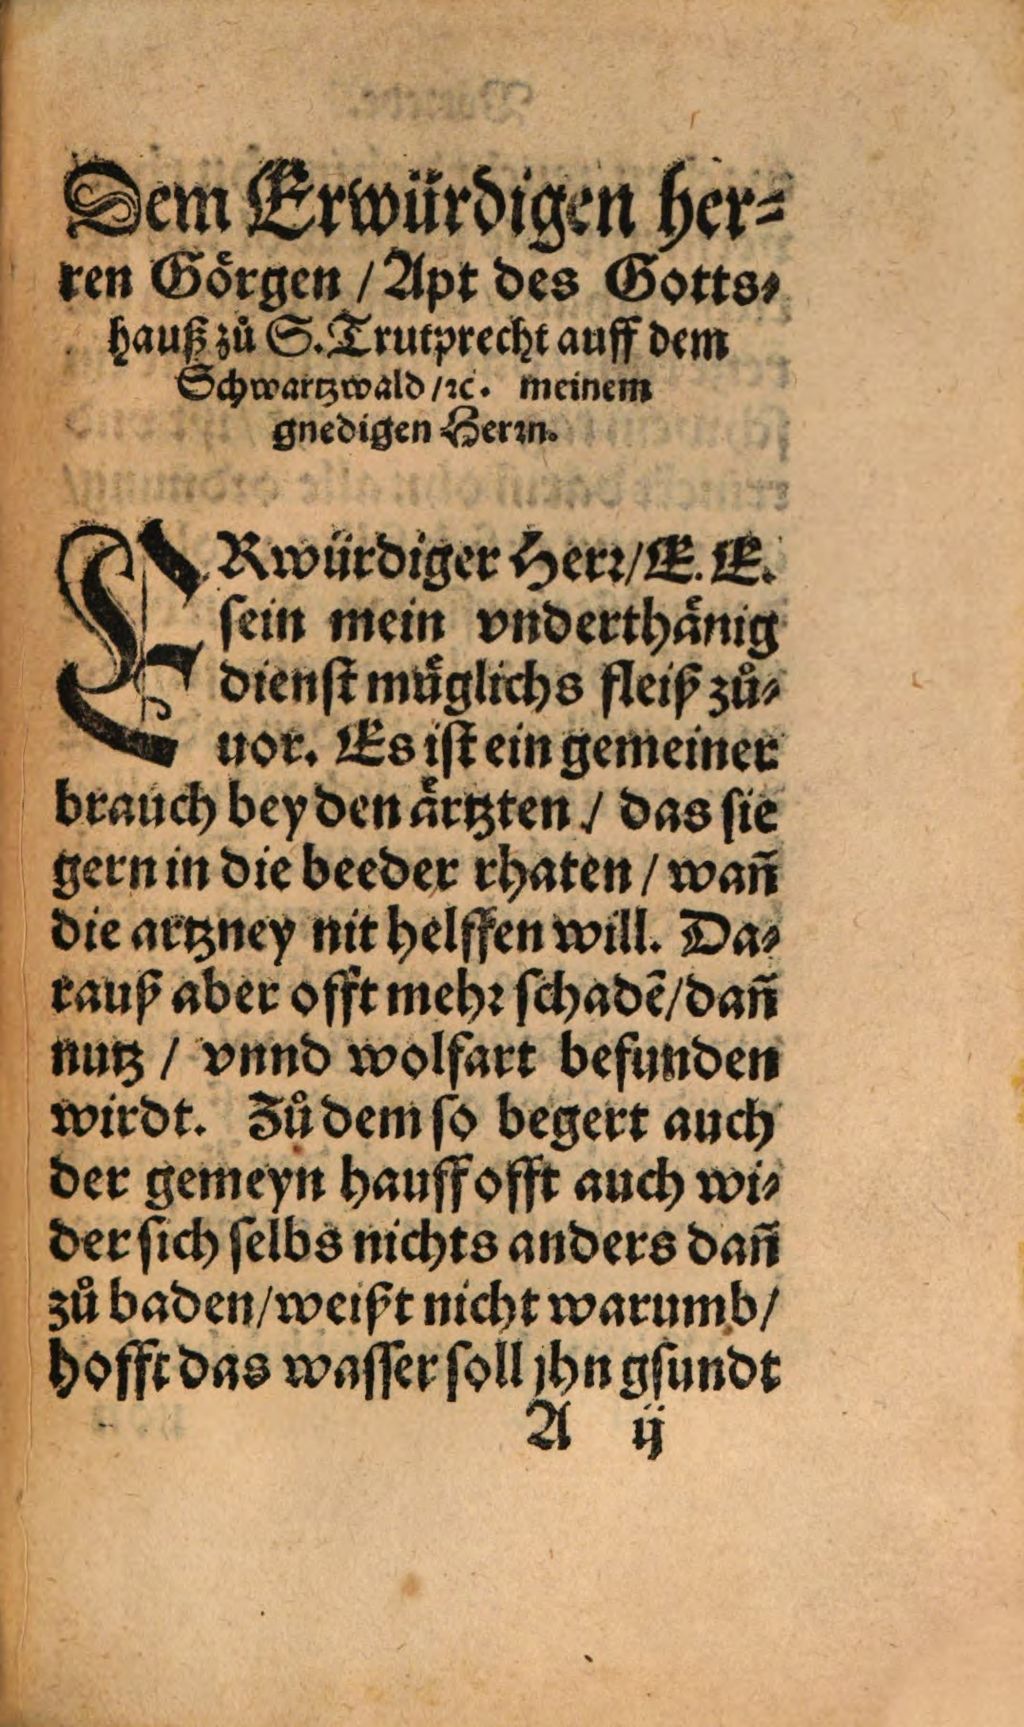 Dem Erwürdigen her⸗
ren Goͤrgen / Apt des Gotts⸗
hauß zuͦ S. Trutprecht auff dem
Schwartzwald /ꝛc. meinem
gnedigen Herꝛn.
ERwürdiger Herꝛ/E. E.
sein mein vnderthaͤnig
dienst muͤglichs fleiß zuͦ⸗
uor. Es ist ein gemeiner
brauch bey den aͤrtzten / das sie
gern in die beeder rhaten / wañ
die artzney nit helffen will. Da⸗
rauß aber offt mehꝛ schadẽ/dañ
nutz / vnnd wolfart befunden
wirdt. Zuͦ dem so begert auch
der gemeyn hauff offt auch wi⸗
der sich selbs nichts anders dañ
zuͦ baden/weißt nicht warumb/
hofft das wasser soll jhn gsundt
A ij